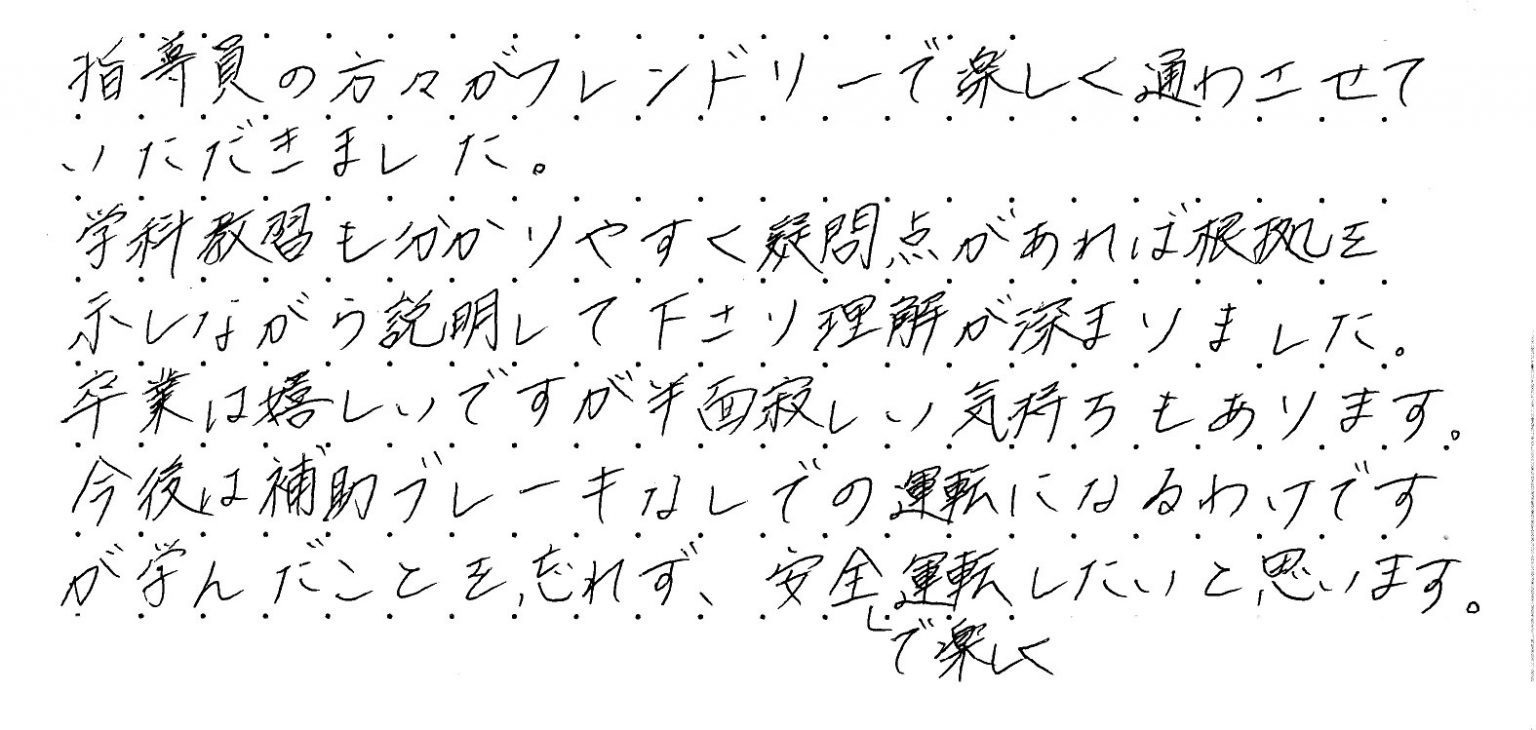 指導員の方々がフレンドリーで楽しく通わさせて
いただきました。
学科教習も分かりやすく疑問点があれば根拠を
示しながら説明して下さり理解が深まりました。
卒業は嬉しいですが半面寂しい気持ちもあります。
今後は補助ブレーキなしでの運転になるわけです
が学んだことを忘れず、安全運転したいと思います。
で楽しく